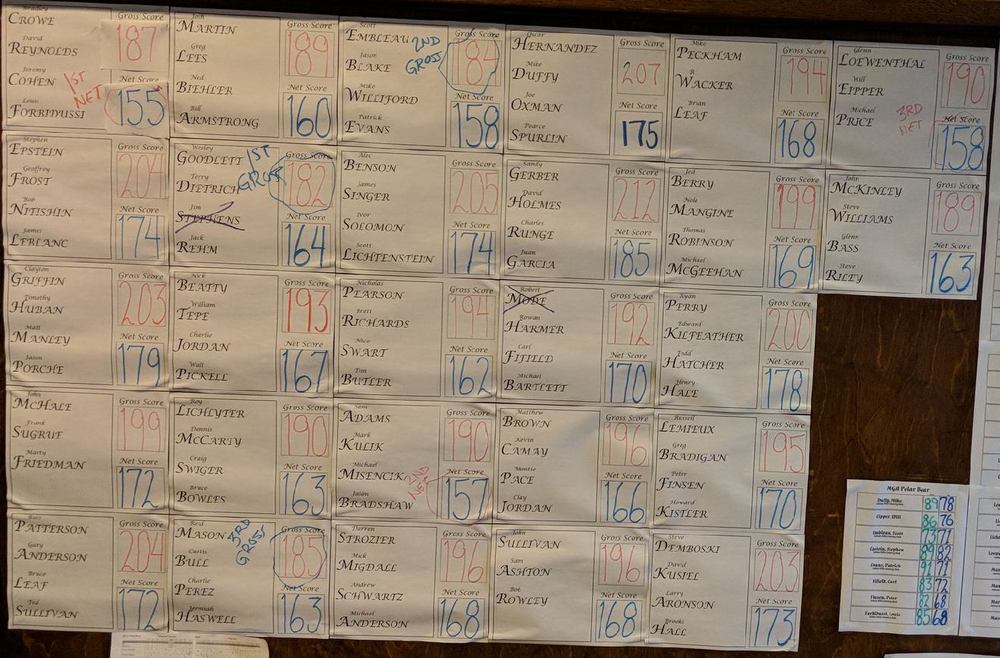 CROWE
David
REYNOLDS
Jeremy
COHEN
Louis
FORBIDUSSI
Gross Score
187
Net Score
155
1ST
NET
Josh
MARTIN
Greg
LEES
Ned
BIEHLER
Bill
ARMSTRONG
Gross Score
189
Net Score
160
Scott
EMBLEAU
Jason
BLAKE
Mike
WILLIFORD
Patrick
EVANS
2ND
GROSS
Gross Score
184
Net Score
158
HERNANDEZ
Mike
DUFFY
Joe
OXMAN
Pearce
SPURLIN
Gross Score
207
Net Score
175
Mike
PECKHAM
R
WACKER
Brian
LEAF
Gross Score
194
Net Score
168
Glenn
LOEWENTHAL
Will
EIPPER
Michael
PRICE
3RD
NET
Gross Score
190
Net Score
158
Stephen
EPSTEIN
Geoffrey
FROST
Bob
NITISHIN
James
LEBLANC
Gross Score
204
Net Score
174
Wesley
GOODLETT
Terry
DIETRICH
Jim
STEPHENS
Jack
REHM
1ST
GROSS
Gross Score
182
Net Score
164
Alec
BENSON
James
SINGER
Ivor
SOLOMON
Scott
LICHTENSTEIN
Gross Score
205
Net Score
174
Sandy
GERBER
David
HOLMES
Charles
RUNGE
Juan
GARCIA
Gross Score
212
Net Score
185
Jed
BERRY
Nels
MANGINE
Thomas
ROBINSON
Michael
MCGEEHAN
Gross Score
199
Net Score
169
John
MCKINLEY
Steve
WILLIAMS
Glenn
BASS
Steve
RILEY
Gross Score
189
Net Score
163
Clayton
GRIFFIN
Timothy
HUBAN
Matt
MANLEY
Jason
PORCHE
Gross Score
203
Net Score
179
Nick
BEATTY
William
TEPE
Charlie
JORDAN
Walt
PICKELL
Gross Score
193
Net Score
167
Nicholas
PEARSON
Brett
RICHARDS
Nico
SWART
Tim
BUTLER
Gross Score
194
Net Score
162
Robert
MODE
Rowan
HARMER
Carl
FIFIELD
Michael
BARTLETT
Gross Score
192
Net Score
170
Ryan
PERRY
Edward
KILFEATHER
Todd
HATCHER
Henry
HALE
Gross Score
200
Net Score
178
John
MCHALE
Frank
SUGRUE
Marty
FRIEDMAN
Gross Score
199
Net Score
172
Roy
LICHLYTER
Dennis
MCCARTY
Craig
SWIGER
Bruce
BOWLES
Gross Score
190
Net Score
163
ADAMS
Mark
KULIK
Michael
MISENCIK
Jason
BRADSHAW
2ND
NET
Gross Score
190
Net Score
157
Matthew
BROWN
Kevin
CAMAY
Montie
PACE
Clay
JORDAN
Gross Score
196
Net Score
166
Russell
LEMIEUX
Greg
BRADIGAN
Peter
FINSEN
Howard
KISTLER
Gross Score
195
Net Score
170
PATTERSON
Gary
ANDERSON
Bruce
LEAF
Ted
SULLIVAN
Gross Score
204
Net Score
172
Reid
MASON
Curtis
BULL
Charlie
PEREZ
Jeremiah
HASWELL
3RD
GROSS
Gross Score
185
Net Score
163
Darren
STROZIER
Mick
MIGDALL
Andrew
SCHWARTZ
Michael
ANDERSON
Gross Score
196
Net Score
168
John
SULLIVAN
Sam
ASHTON
Bob
ROWLEY
Gross Score
196
Net Score
168
Steve
DEMBOSKI
David
KUSIEL
Larry
ARONSON
Brooks
HALL
Gross Score
203
Net Score
173
MGA Polar Bear
Duffy, Mike 89 78
Eipper, Will 86 76
Embleau, Scott 73 71
Epstein, Stephen 89 82
Evans, Patrick 91 77
Fifield, Carl 83 72
Finsen, Peter 82 68
85 68